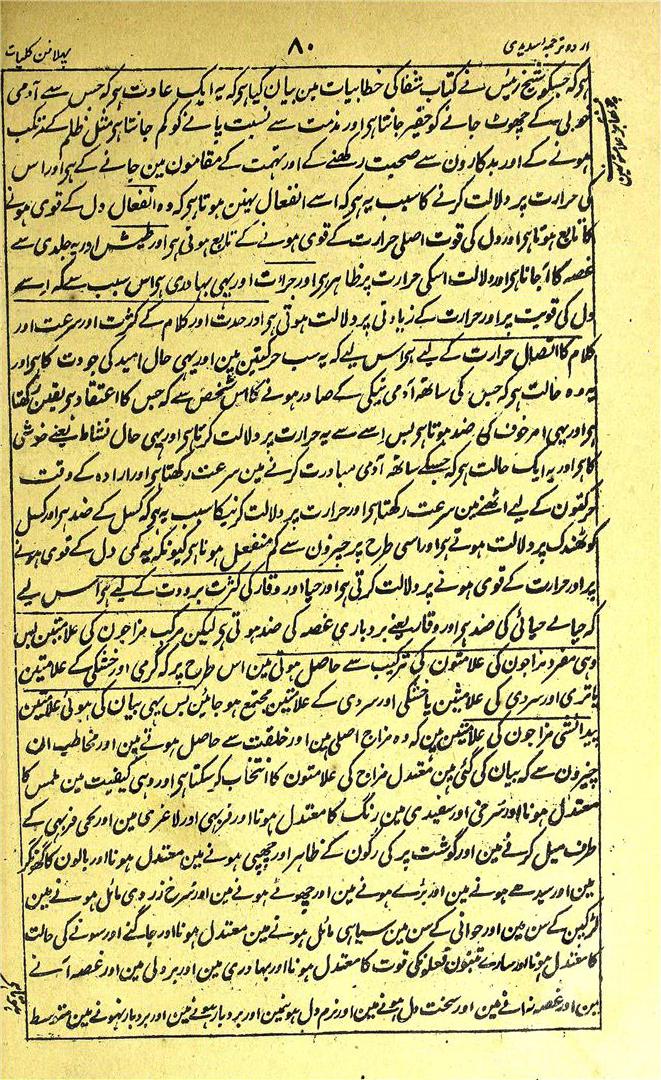 اردو ترجمہ سدیدی ۸۰ پہلا فن کلیات
ہر کہ جسکو شیخ رئیس نے کتاب شفا کی خطابیات مین بیان کیا ہو کہ یہ ایک عادت ہو کہ جس سے آدمی
خوبی کے چھوٹ جانے کو حقیر جانتا ہر اور مذمت سے نسبت پانے کو کم جانتا ہر مثل ظلم کے مرتکب
ہونے کے اور بدکارون سے صحبت رکھنے کے اور تہمت کے مقامون مین جانے کے ہر اور اس
کی حرارت پر دلالت کرنے کا سبب یہ ہر کہ اسے انفعال نہین ہوتا ہر کہ وہ انفعال دل کے قوی ہونے
کا تابع ہوتا ہر اور دل کی قوت اصلی حرارت کے قوی ہونے کے تابع ہوتی ہر اور طیش اور یہ جلدی سے
غصہ کا آجانا ہر اور دلالت اسکی حرارت پر ظاہر ہر اور جرات اور یہی بہادری ہر اس سبب سے کہ اسے
دل کی قویت پر اور حرارت کے زیادتی پر دلالت ہوتی ہر اور حدت اور کلام کے کثرت اور سرعت اور
کلام کا اتصال حرارت کے لیے ہر اس لیے کہ یہ سب حرکتین ہین اور یہی حال امید کی جودت کا ہر اور
یہ وہ حالت ہر کہ جس کی ساتھ آدمی نیکی کے صادر ہونے کا اس شخص سے کہ جس کا اعتقاد ہر یقین رکھتا
ہر اور یہی امر خوف کی ضد ہوتا ہر بس اسے سے یہ حرارت پر دلالت کرتا ہر اور یہی حال نشاط یعنے خوشی
کا ہر اور یہ ایک حالت ہر کہ جسکے ساتھ آدمی مبادرت کرنے مین سرعت رکھتا ہر اور ارادہ کے وقت
حرکتون کے لیے اٹھنے مین سرعت رکھتا ہر اور حرارت پر دلالت کرنیکا سبب یہ ہر کہ کسل کے ضد ہر اور کسل
کو ٹھنڈک پر دلالت ہوتے ہر اور اسی طرح پر چیزون سے کم منفعل ہونا ہر کیونکہ یہ کمی دل کے قوی ہونے
پر اور حرارت کے قوی ہونے پر دلالت کرتی ہر اور حیا اور وقار کی کثرت برودت کے لیے ہر اس لیے
کہ حیا بے حیائی کی ضد ہر اور وقار یعنے بردباری غصہ کی ضد ہوتی ہر لیکن مرکب مزاجون کی علامتین بس
وہی مفرد مزاجون کی علامتون کی ترکیب سے حاصل ہوتی مین اس طرح پر کہ گرمی اور خشکی کے علامتین
یا تری اور سردی کی علامتین یا خشکی اور سردی کے علامتین مجتمع ہو جائین بس یہی بیان کی ہوئی علامتین
پیدائشی مزاجون کی علامتین ہین کہ وہ مزاج اصلی ہین اور خلقت سے حاصل ہوتے ہین اور مخاطب ان
چیزون سے کہ بیان کی گئی ہین معتدل مزاج کی علامتون کا انتخاب کر سکتا ہر اور وہی کیفیت مین لمس کا
معتدل ہونا اور سرخی اور سفیدی مین رنگ کا معتدل ہونا اور فربہی اور لاغری مین اور کمی فربہی کے
طرف میل کرنے مین اور گوشت پر کی رگون کے ظاہر اور چھپی ہونے مین معتدل ہونا اور بالون کا گھونگر
مین اور سیدھے ہونے مین اور بڑے ہونے مین اور چھوٹے ہونے مین اور سرخ زردی مائل ہونے مین
لڑکپن کے سن مین اور جوانی کے سن مین سیاہی مائل ہونے مین معتدل ہونا اور جاگنے اور سونے کی حالت
کا معتدل ہونا اور سارے فعلونکی قوت کا معتدل ہونا اور بہادری مین اور بزدلی مین اور غصہ آنے
مین اور غصہ نہ آنے مین اور سخت دل ہونے مین اور نرم دل ہونیمین اور بردبار ہونے مین اور بردبار نہونے مین متوسط